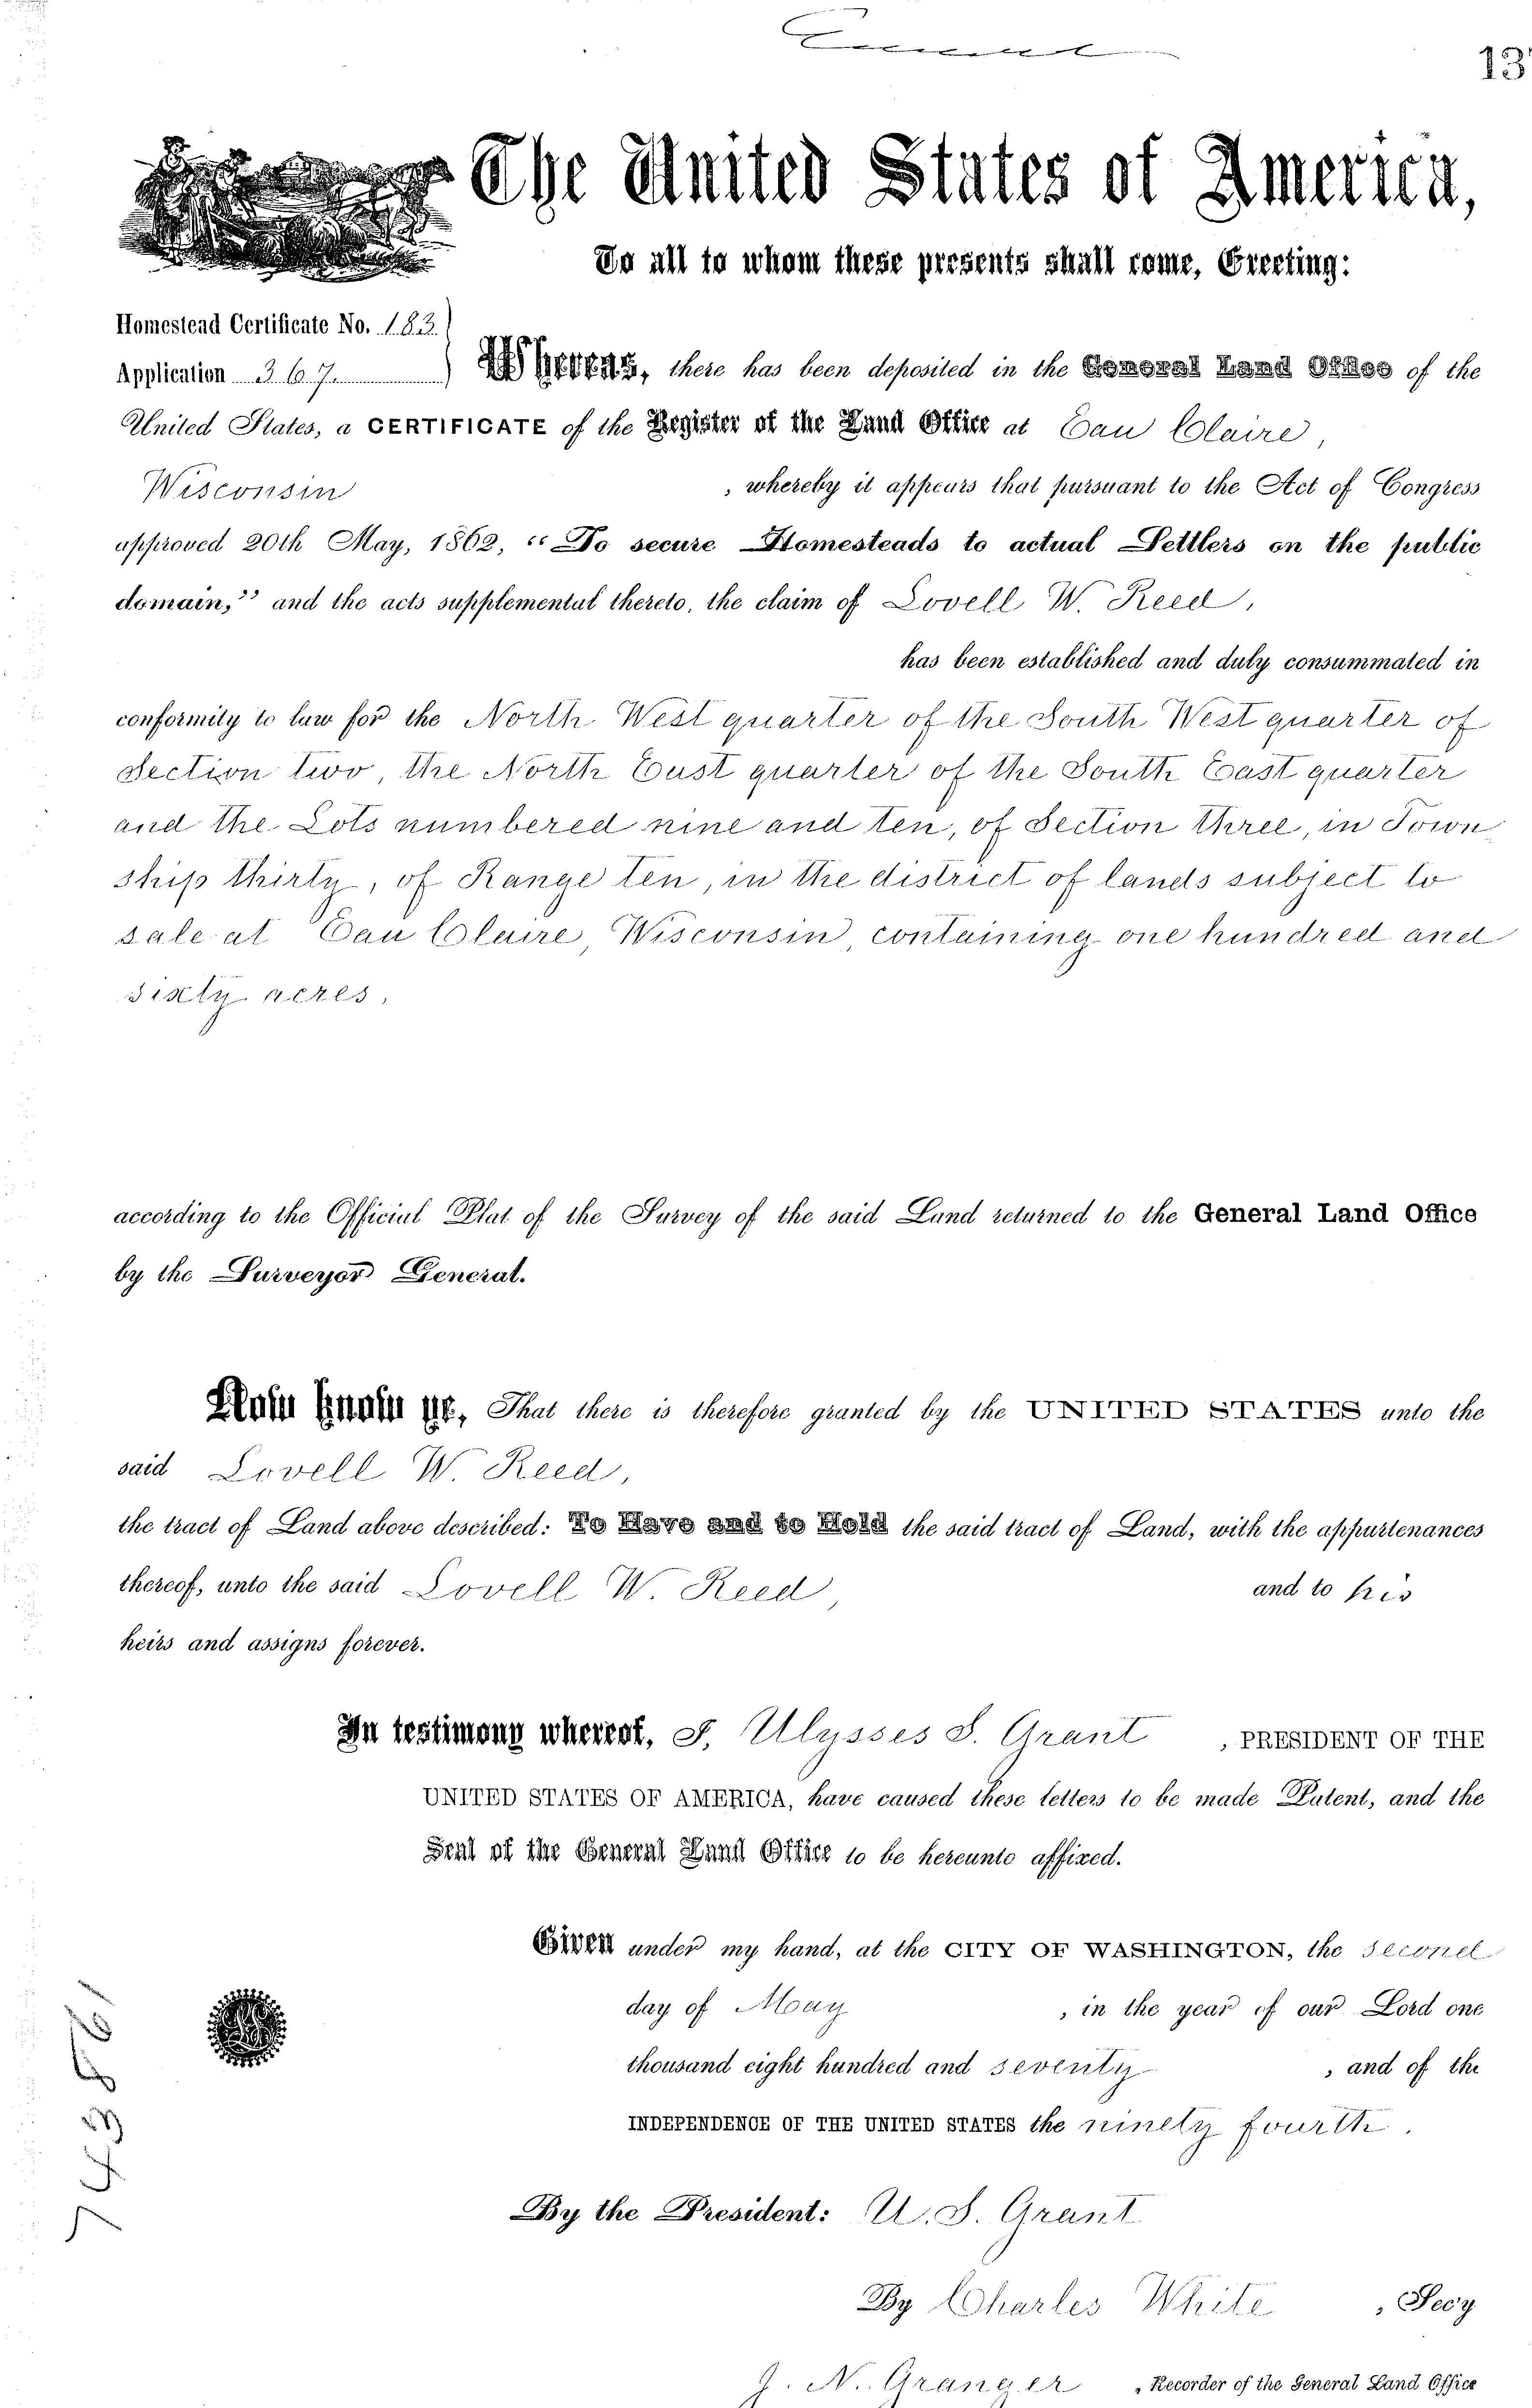 13
The United States of America,
To all to whom these presents shall come, Greeting:
Homestead Certificate No. 183
Application 367
Whereas, there has been deposited in the General Land Office of the
United States, a CERTIFICATE of the Register of the Land Office at Eau Claire,
Wisconsin , whereby it appears that pursuant to the Act of Congress
approved 20th May, 1862, “To secure Homesteads to actual Settlers on the public
domain,” and the acts supplemental thereto, the claim of Lovell W. Reed,
has been established and duly consummated in
conformity to law for the North West quarter of the South West quarter of
Section two, the North East quarter of the South East quarter
and the Lots numbered nine and ten, of Section three, in Town
ship thirty, of Range ten, in the district of lands subject to
sale at Eau Claire, Wisconsin, containing one hundred and
sixty acres,
according to the Official Plat of the Survey of the said Land returned to the General Land Office
by the Surveyor General.
Now know ye, That there is therefore granted by the UNITED STATES unto the
said Lovell W. Reed,
the tract of Land above described: To Have and to Hold the said tract of Land, with the appurtenances
thereof, unto the said Lovell W. Reed, and to his
heirs and assigns forever.
In testimony whereof, I, Ulysses S. Grant , PRESIDENT OF THE
UNITED STATES OF AMERICA, have caused these letters to be made Patent, and the
Seal of the General Land Office to be hereunto affixed.
Given under my hand, at the CITY OF WASHINGTON, the second
day of May , in the year of our Lord one
thousand eight hundred and seventy , and of the
INDEPENDENCE OF THE UNITED STATES the ninety fourth.
By the President: U. S. Grant
By Charles White , Secy
J. N. Granger , Recorder of the General Land Office